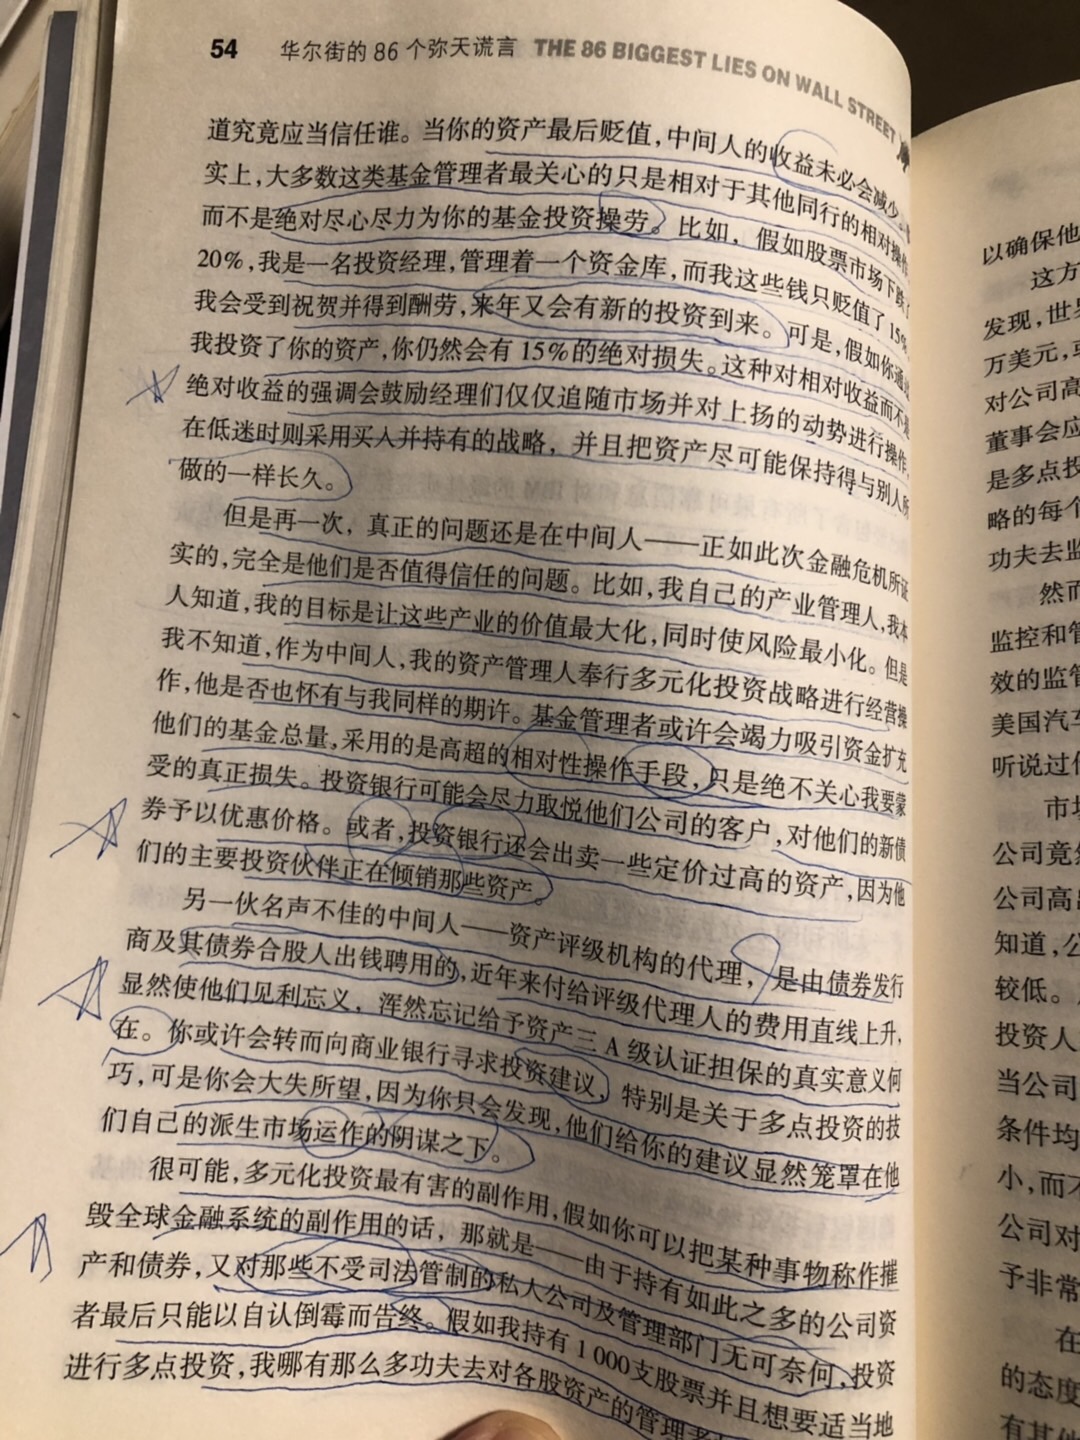 54 华尔街的86个弥天谎言 THE 86 BIGGEST LIES ON WALL STREET
道究竟应当信任谁。当你的资产最后贬值，中间人的收益未必会减少。
实上，大多数这类基金管理者最关心的只是相对于其他同行的相对操作
而不是绝对尽心尽力为你的基金投资操劳。比如，假如股票市场下跌了
20%，我是一名投资经理，管理着一个资金库，而我这些钱只贬值了15%
我会受到祝贺并得到酬劳，来年又会有新的投资到来。可是，假如你通过
我投资了你的资产，你仍然会有15%的绝对损失。这种对相对收益而不是
绝对收益的强调会鼓励经理们仅仅追随市场并对上扬的动势进行操作，
在低迷时则采用买入并持有的战略，并且把资产尽可能保持得与别人所
做的一样长久。
但是再一次，真正的问题还是在中间人——正如此次金融危机所证
实的，完全是他们是否值得信任的问题。比如，我自己的产业管理人，我本
人知道，我的目标是让这些产业的价值最大化，同时使风险最小化。但是
我不知道，作为中间人，我的资产管理人奉行多元化投资战略进行经营操
作，他是否也怀有与我同样的期许。基金管理者或许会竭力吸引资金扩充
他们的基金总量，采用的是高超的相对性操作手段，只是绝不关心我要蒙
受的真正损失。投资银行可能会尽力取悦他们公司的客户，对他们的新债
券予以优惠价格。或者，投资银行还会出卖一些定价过高的资产，因为他
们的主要投资伙伴正在倾销那些资产。
另一伙名声不佳的中间人——资产评级机构的代理，是由债券发行
商及其债券合股人出钱聘用的，近年来付给评级代理人的费用直线上升，
显然使他们见利忘义，浑然忘记给予资产三A级认证担保的真实意义何
在。你或许会转而向商业银行寻求投资建议，特别是关于多点投资的技
巧，可是你会大失所望，因为你只会发现，他们给你的建议显然笼罩在他
们自己的派生市场运作的阴谋之下。
很可能，多元化投资最有害的副作用，假如你可以把某种事物称作摧
毁全球金融系统的副作用的话，那就是——由于持有如此之多的公司资
产和债券，又对那些不受司法管制的私人公司及管理部门无可奈何，投资
者最后只能以自认倒霉而告终。假如我持有1000支股票并且想要适当地
进行多点投资，我哪有那么多功夫去对各股资产的管理者
以确保他
这方
发现，世界
万美元，或
对公司高
董事会应
是多点投
略的每个
功夫去监
然而
监控和管
效的监管
美国汽车
听说过他
市场
公司竟然
公司高出
知道，公
较低。
投资人
当公司
条件均
小，而不
公司对
予非常
在
的态度
有其他